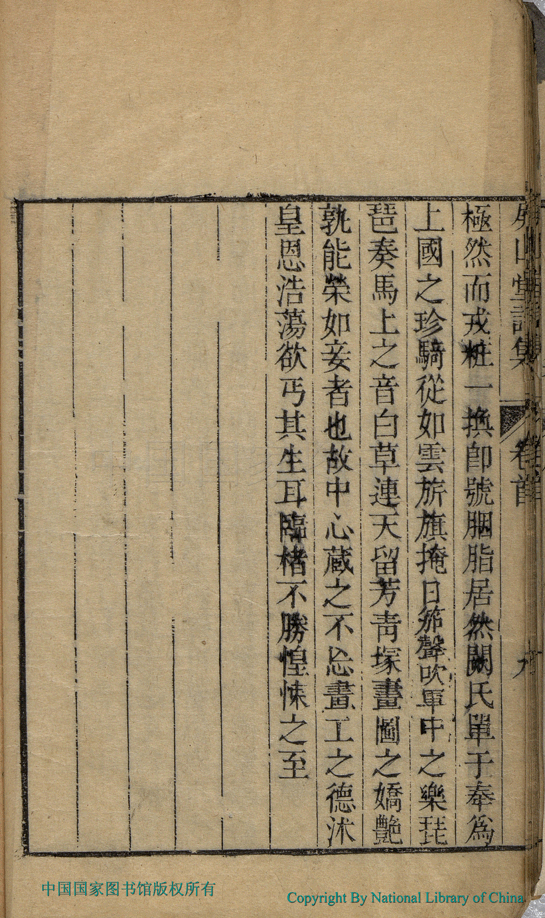 山堂詩集　卷首
極然而戎粧一換卽號胭脂居然閼氏單于奉爲
上國之珍騎從如雲旂旗掩日笳聲吹軍中之樂琵
琶奏馬上之音白草連天留芳靑塚畫圖之嬌艶
孰能榮如妾者也故中心藏之不忘畫工之德沭
皇恩浩蕩欲丐其生耳臨楮不勝惶悚之至
中国国家图书馆版权所有
Copyright By National Library of China